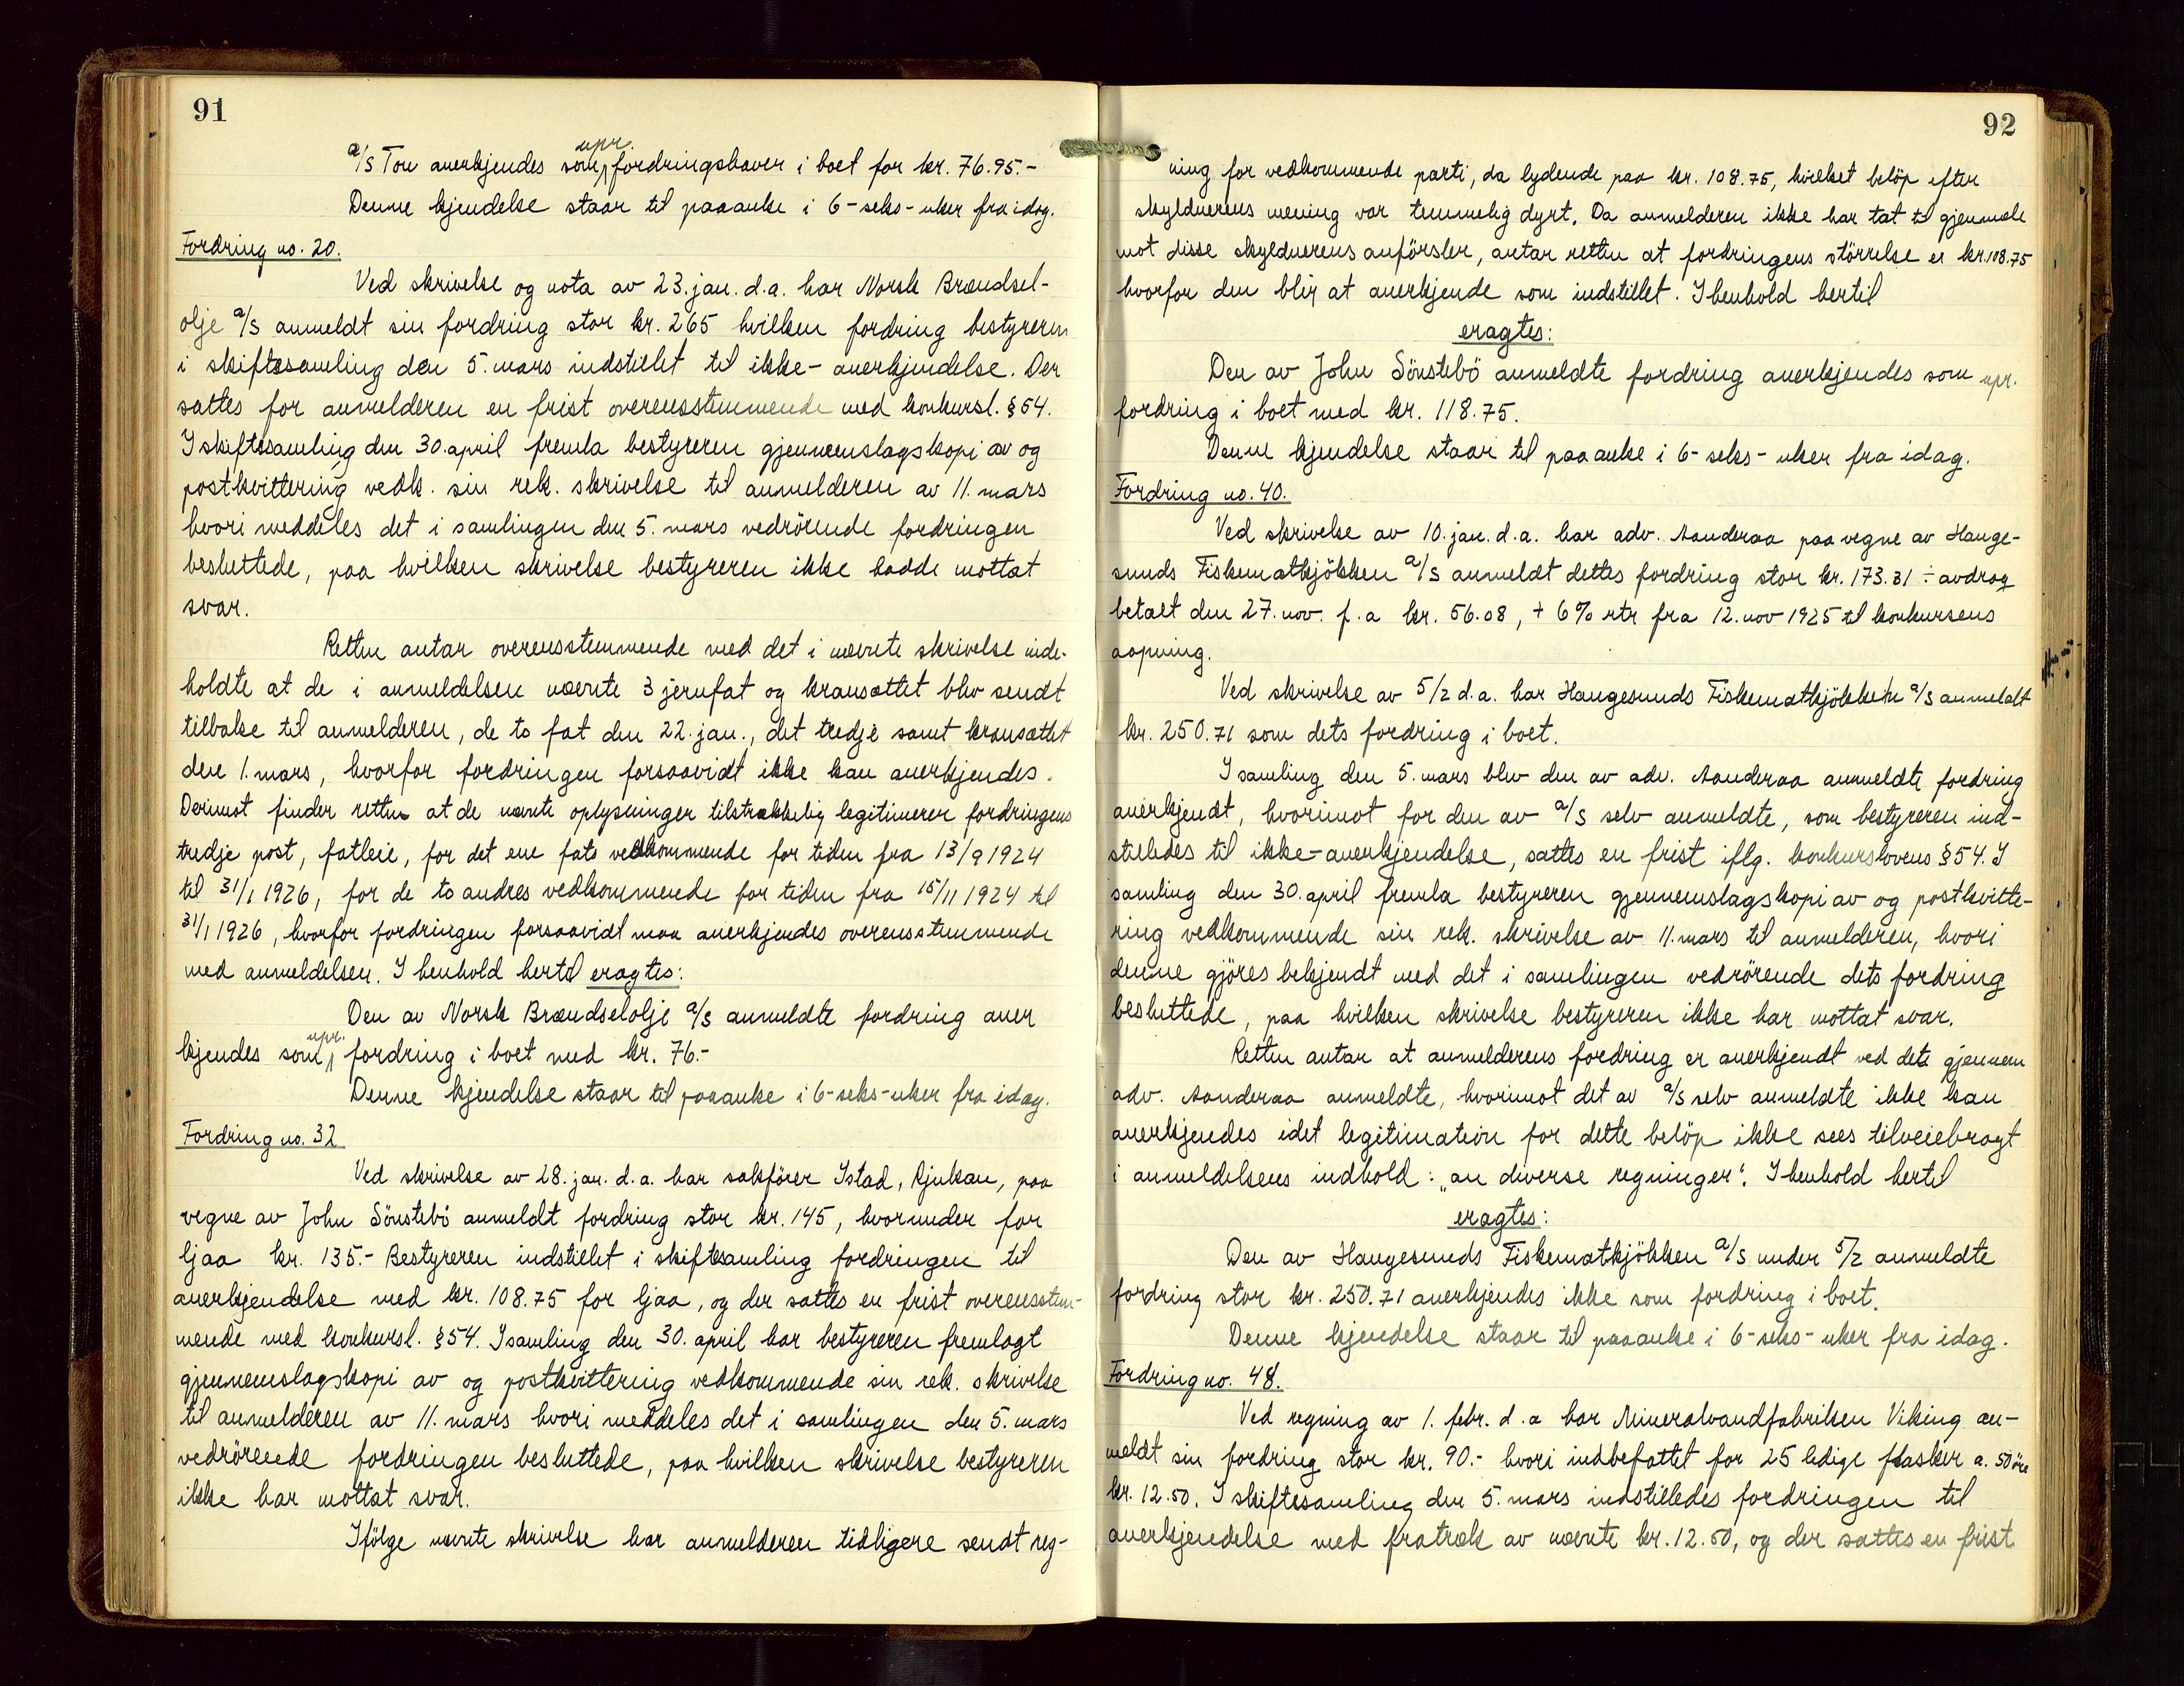 91
upr.
a/s Tou anerkjendes som fordringshaver i boet for kr. 76.95.-
Denne kjendelse staar til paaanke i 6-seks-uker fra idag.
Fordring no. 20.
Ved skrivelse og nota av 23. jan. d.a. har Norsk Brændsel-
olje a/s anmeldt sin fordring stor kr. 265 hvilken fordring bestyreren
i skiftesamling den 5. mars indstillet til ikke-anerkjendelse. Der
sattes for anmelderen en frist overensstemmende med konkursl. § 54.
I skiftesamling den 30. april fremla bestyreren gjennemslagskopi av og
postkvittering vedk. sin rek. skrivelse til anmelderen av 11. mars
hvori meddeles det i samlingen den 5. mars vedrörende fordringen
besluttede, paa hvilken skrivelse bestyreren ikke hadde mottat
svar.
Retten antar overensstemmende med det i nævnte skrivelse inde-
holdte at de i anmeldelsen nævnte 3 jernfat og kransættet blev sendt
tilbake til anmelderen, de to fat den 22. jan., det tredje samt kransættet
den 1. mars, hvorfor fordringen forsaavidt ikke kan anerkjendes.
Derimot finder retten at de nævnte oplysninger tilstrækkelig legitimerer fordringens
tredje post, fatleie, for det ene fats vedkommende for tiden fra 13/9 1924
til 31/1 1926, for de to andres vedkommende for tiden fra 15/11 1924 til
31/1 1926, hvorfor fordringen forsaavidt maa anerkjendes overensstemmende
med anmeldelsen. I henhold hertil eragtes:
Den av Norsk Brændselolje a/s anmeldte fordring aner
kjendes som upr. fordring i boet med kr. 76.-
Denne kjendelse staar til paaanke i 6-seks-uker fra idag.
Fordring no. 32
Ved skrivelse av 28. jan. d.a. har sakförer Istad, Rjukan, paa
vegne av John Sönstebö anmeldt fordring stor kr. 145, hvorunder for
ljaa kr. 135.- Bestyreren indstillet i skiftesamling fordringen til
anerkjendelse med kr. 108.75 for ljaa, og der sattes en frist overensstem-
mende med konkursl. § 54. I samling den 30. april har bestyreren fremlagt
gjennemslagskopi av og postkvittering vedkommende sin rek. skrivelse
til anmelderen av 11. mars hvori meddeles det i samlingen den 5. mars
vedrörende fordringen besluttede, paa hvilken skrivelse bestyreren
ikke har mottat svar.
Ifölge nævnte skrivelse har anmelderen tidligere sendt reg-
92
ning for vedkommende parti, da lydende paa kr. 108.75, hvilket belöp efter
skyldnerens mening var temmelig dyrt. Da anmelderen ikke har tat til gjenmæle
mot disse skyldnerens anförsler, antar retten at fordringens störrelse er kr. 108.75
hvorfor den blir at anerkjende som indstillet. I henhold hertil
eragtes:
Den av John Sönstebö anmeldte fordring anerkjendes som upr.
fordring i boet med kr. 118.75.
Denne kjendelse staar til paaanke i 6-seks-uker fra idag.
Fordring no. 40.
Ved skrivelse av 10. jan. d.a. har adv. Aanderaa paa vegne av Hauge-
sunds Fiskematkjökken a/s anmeldt dettes fordring stor kr. 173.31 ÷ avdrag
betalt den 27. nov. f.a kr. 56.08, + 6% rtr fra 12. nov 1925 til konkursens
aapning.
Ved skrivelse av 5/2 d.a. har Haugesunds Fiskematkjökken a/s anmeldt
kr. 250.71 som dets fordring i boet.
I samling den 5. mars blev den av adv. Aanderaa anmeldte fordring
anerkjendt, hvorimot for den av a/s selv anmeldte, som bestyreren ind-
stilledes til ikke-anerkjendelse, sattes en frist iflg. konkurslovens § 54. I
samling den 30. april fremla bestyreren gjennemslagskopi av og postkvitte-
ring vedkommende sin rek. skrivelse av 11. mars til anmelderen, hvori
denne gjöres bekjendt med det i samlingen vedrörende dets fordring
besluttede, paa hvilken skrivelse bestyreren ikke har mottat svar.
Retten antar at anmelderens fordring er anerkjendt ved det gjennem
adv. Aanderaa anmeldte, hvorimot det av a/s selv anmeldte ikke kan
anerkjendes idet legitimation for dette belöp ikke sees tilveiebragt
i anmeldelsens indhold: "an diverse regninger". I henhold hertil
eragtes:
Den av Haugesunds Fiskematkjökken a/s under 5/2 anmeldte
fordring stor kr. 250.71 anerkjendes ikke som fordring i boet.
Denne kjendelse staar til paaanke i 6-seks-uker fra idag.
Fordring no. 48.
Ved regning av 1. febr. d.a har Mineralvandfabrikken Viking an-
meldt sin fordring stor kr. 90.- hvori indbefattet for 25 ledige flasker a. 50 öre
kr. 12.50. I skiftesamling den 5. mars indstilledes fordringen til
anerkjendelse med fratræk av nævnte kr. 12.50, og der sattes en frist